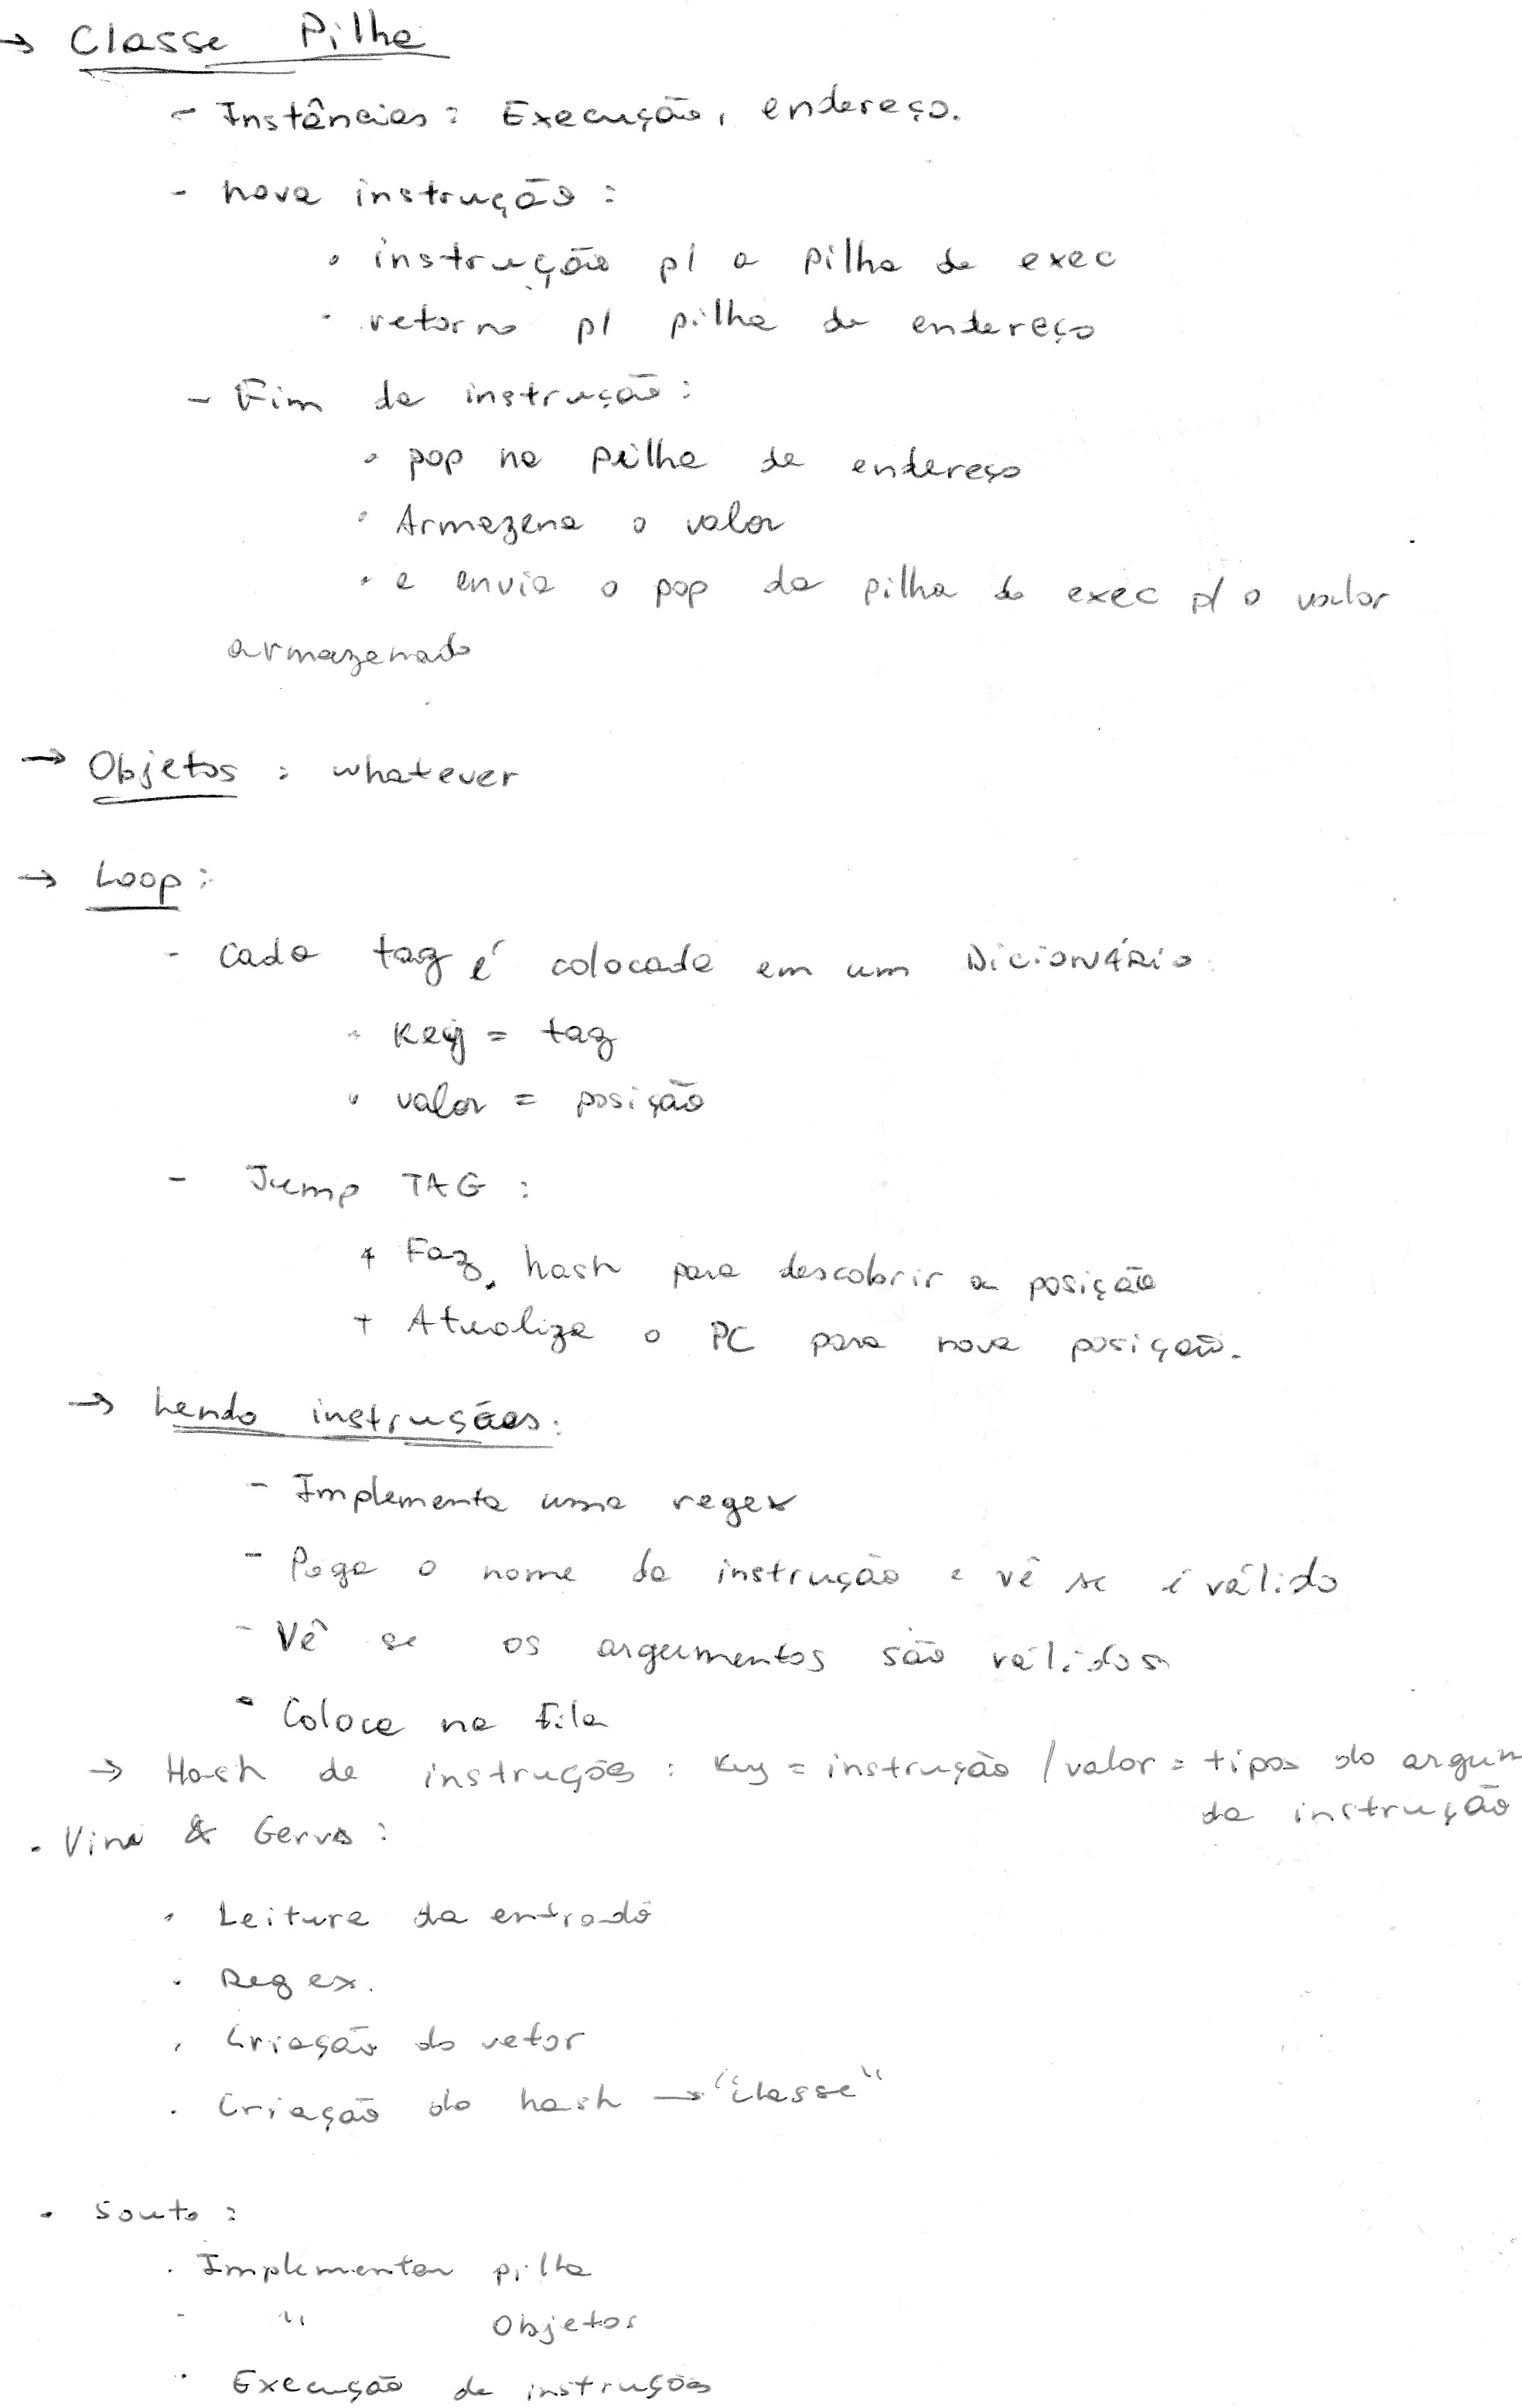 → Classe Pilha
- Instâncias: Execução, endereço.
- nova instrução:
• instrução p/ a pilha de exec
• retorno p/ pilha de endereço
- Fim da instrução:
• pop na pilha de endereço
• Armazena o valor
• e envia o pop da pilha de exec p/ o valor
armazenado
→ Objetos: whatever
→ Loop:
- Cada tag é colocada em um Dicionário:
• Key = tag
• valor = posição
- Jump TAG:
+ Faz hash para descobrir a posição
+ Atualiza o PC para nova posição.
→ Lendo instruções:
- Implementa uma regex
- Pega o nome da instrução e vê se é válido
- Vê se os argumentos são válidos
- Coloca na fila
→ Hash de instruções: Key = instrução / valor = tipos do argum
da instrução
• Vini & Gerva:
• Leitura da entrada
• Regex.
• Criação do vetor
• Criação do hash → "classe"
• Souto:
• Implementar pilha
- " Objetos
• Execução de instruções